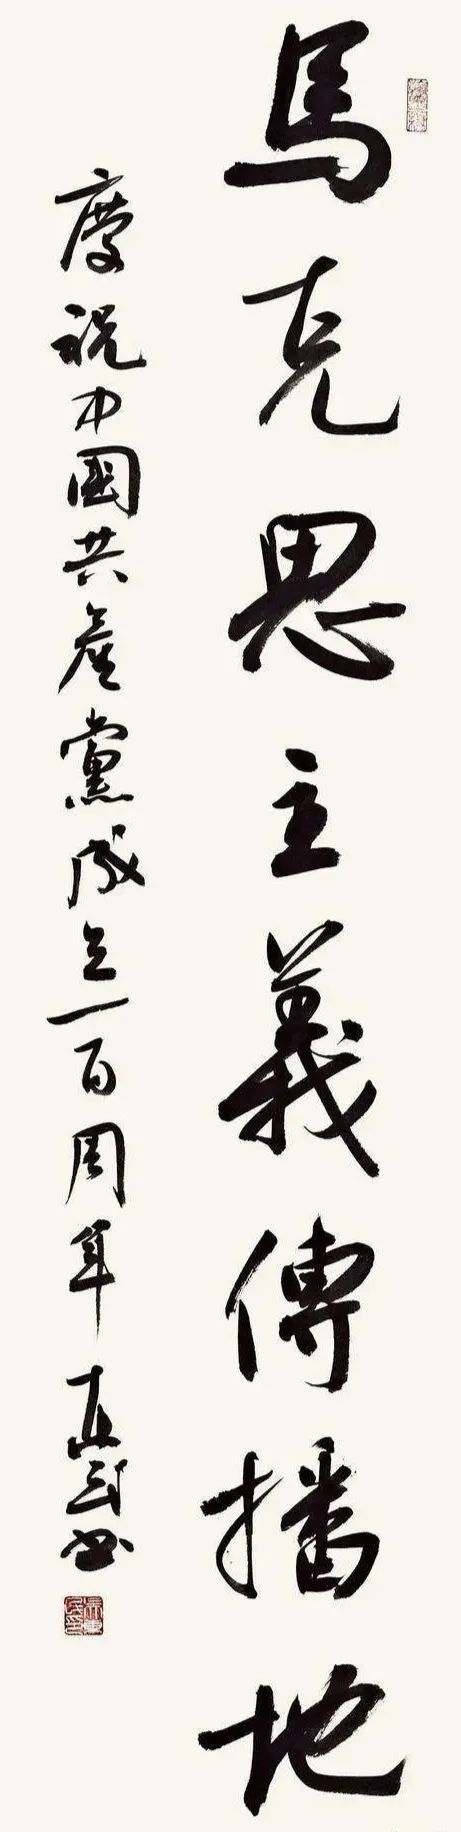 馬克思主義傳播地
慶祝中國共產黨成立一百周年 東武書